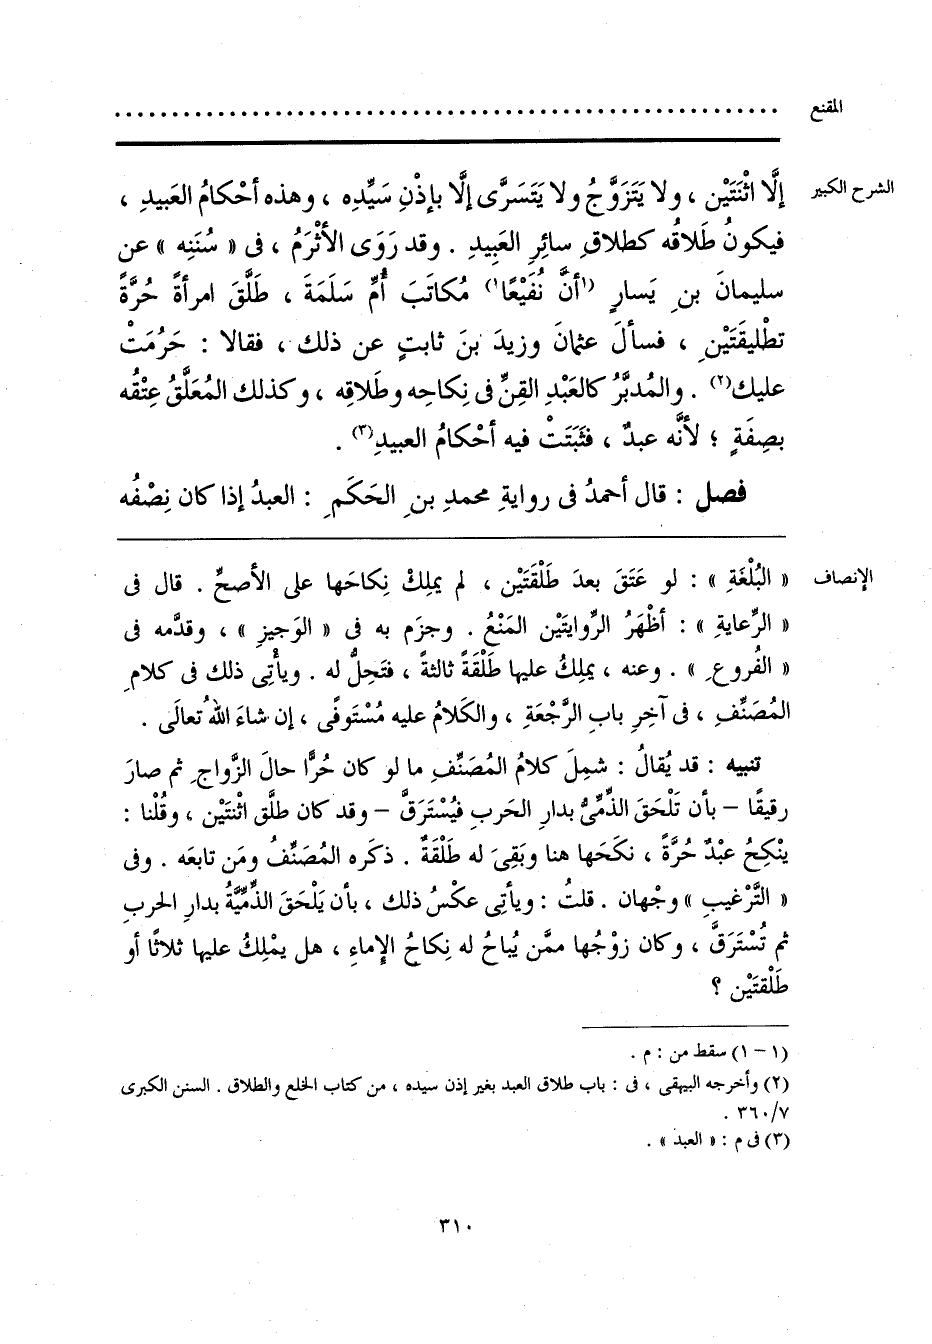 المقنع
الشرح الكبير
إلَّا اثْنَتَيْن ، ولا يَتَزَوَّجُ ولا يَتَسَرَّى إلَّا بإذْنِ سَيِّدِه ، وهذه أحْكامُ العَبيدِ ،
فيكونُ طَلاقُه كطلاقِ سائِرِ العَبِيدِ . وقد رَوَى الأثْرَمُ ، فى « سُنَنِه » عن
سليمانَ بنِ يَسارٍ (١أنَّ نُفَيْعًا١) مُكاتَبَ أُمِّ سَلَمَةَ ، طَلَّقَ امرأةً حُرَّةً
تطْليقَتَيْنِ ، فسألَ عثمانَ وزيدَ بنَ ثابتٍ عن ذلك ، فقالا : حَرُمَتْ
عليك(٢) . والمُدبَّرُ كالعَبْدِ القِنِّ فى نِكاحِه وطَلاقِه ، وكذلك المُعَلَّقُ عِتْقُه
بصِفَةٍ ؛ لأنَّه عبدٌ ، فثَبَتَتْ فيه أحْكامُ العبيدِ(٣) .
فصل : قال أحمدُ فى روايةِ محمدِ بنِ الحَكَمِ : العبدُ إذا كان نِصْفُه
الإنصاف
« البُلْغَةِ » : لو عَتَقَ بعدَ طَلْقَتَيْن ، لم يملِكْ نِكاحَها على الأصحِّ . قال فى
« الرِّعاية » : أظْهَرُ الرِّوايتَيْن المَنْعُ . وجزَم به فى « الوَجيزِ » ، وقدَّمه فى
« الفُروعِ » . وعنه ، يملِكُ عليها طَلْقَةً ثالثةً ، فتَحِلُّ له . ويأْتِى ذلك فى كلامِ
المُصَنِّفِ ، فى آخِرِ بابِ الرَّجْعَةِ ، والكَلامُ عليه مُسْتَوفًى ، إن شاءَ اللهُ تعالَى .
تنبيه : قد يُقالُ : شمِلَ كلامُ المُصَنِّفِ ما لو كان حُرًّا حالَ الزَّواجِ ثم صارَ
رقيقًا – بأن تَلْحَقَ الذِّمِّىُّ بدارِ الحَربِ فيُسْتَرَقَّ – وقد كان طلَّق اثْنتَيْن ، وقُلْنا :
ينْكِحُ عبْدٌ حُرَّةً ، نكَحَها هنا وبَقِىَ له طَلْقَةٌ . ذكَره المُصَنِّفُ ومَن تابعَه . وفى
« التَّرْغيبِ » وجْهان . قلتُ : ويأْتِى عكْسُ ذلك ، بأن يَلْحَقَ الذِّمِّيَّةُ بدارِ الحربِ
ثم تُسْتَرَقَّ ، وكان زوْجُها ممَّن يُباحُ له نِكاحُ الإِماءِ ، هل يمْلِكُ عليها ثلاثًا أو
طَلْقتَيْن ؟
(١ – ١) سقط من : م .
(٢) وأخرجه البيهقى ، فى : باب طلاق العبد بغير إذن سيده ، من كتاب الخلع والطلاق . السنن الكبرى
٣٦٠/٧ .
(٣) فى م : « العبد » .
٣١٠